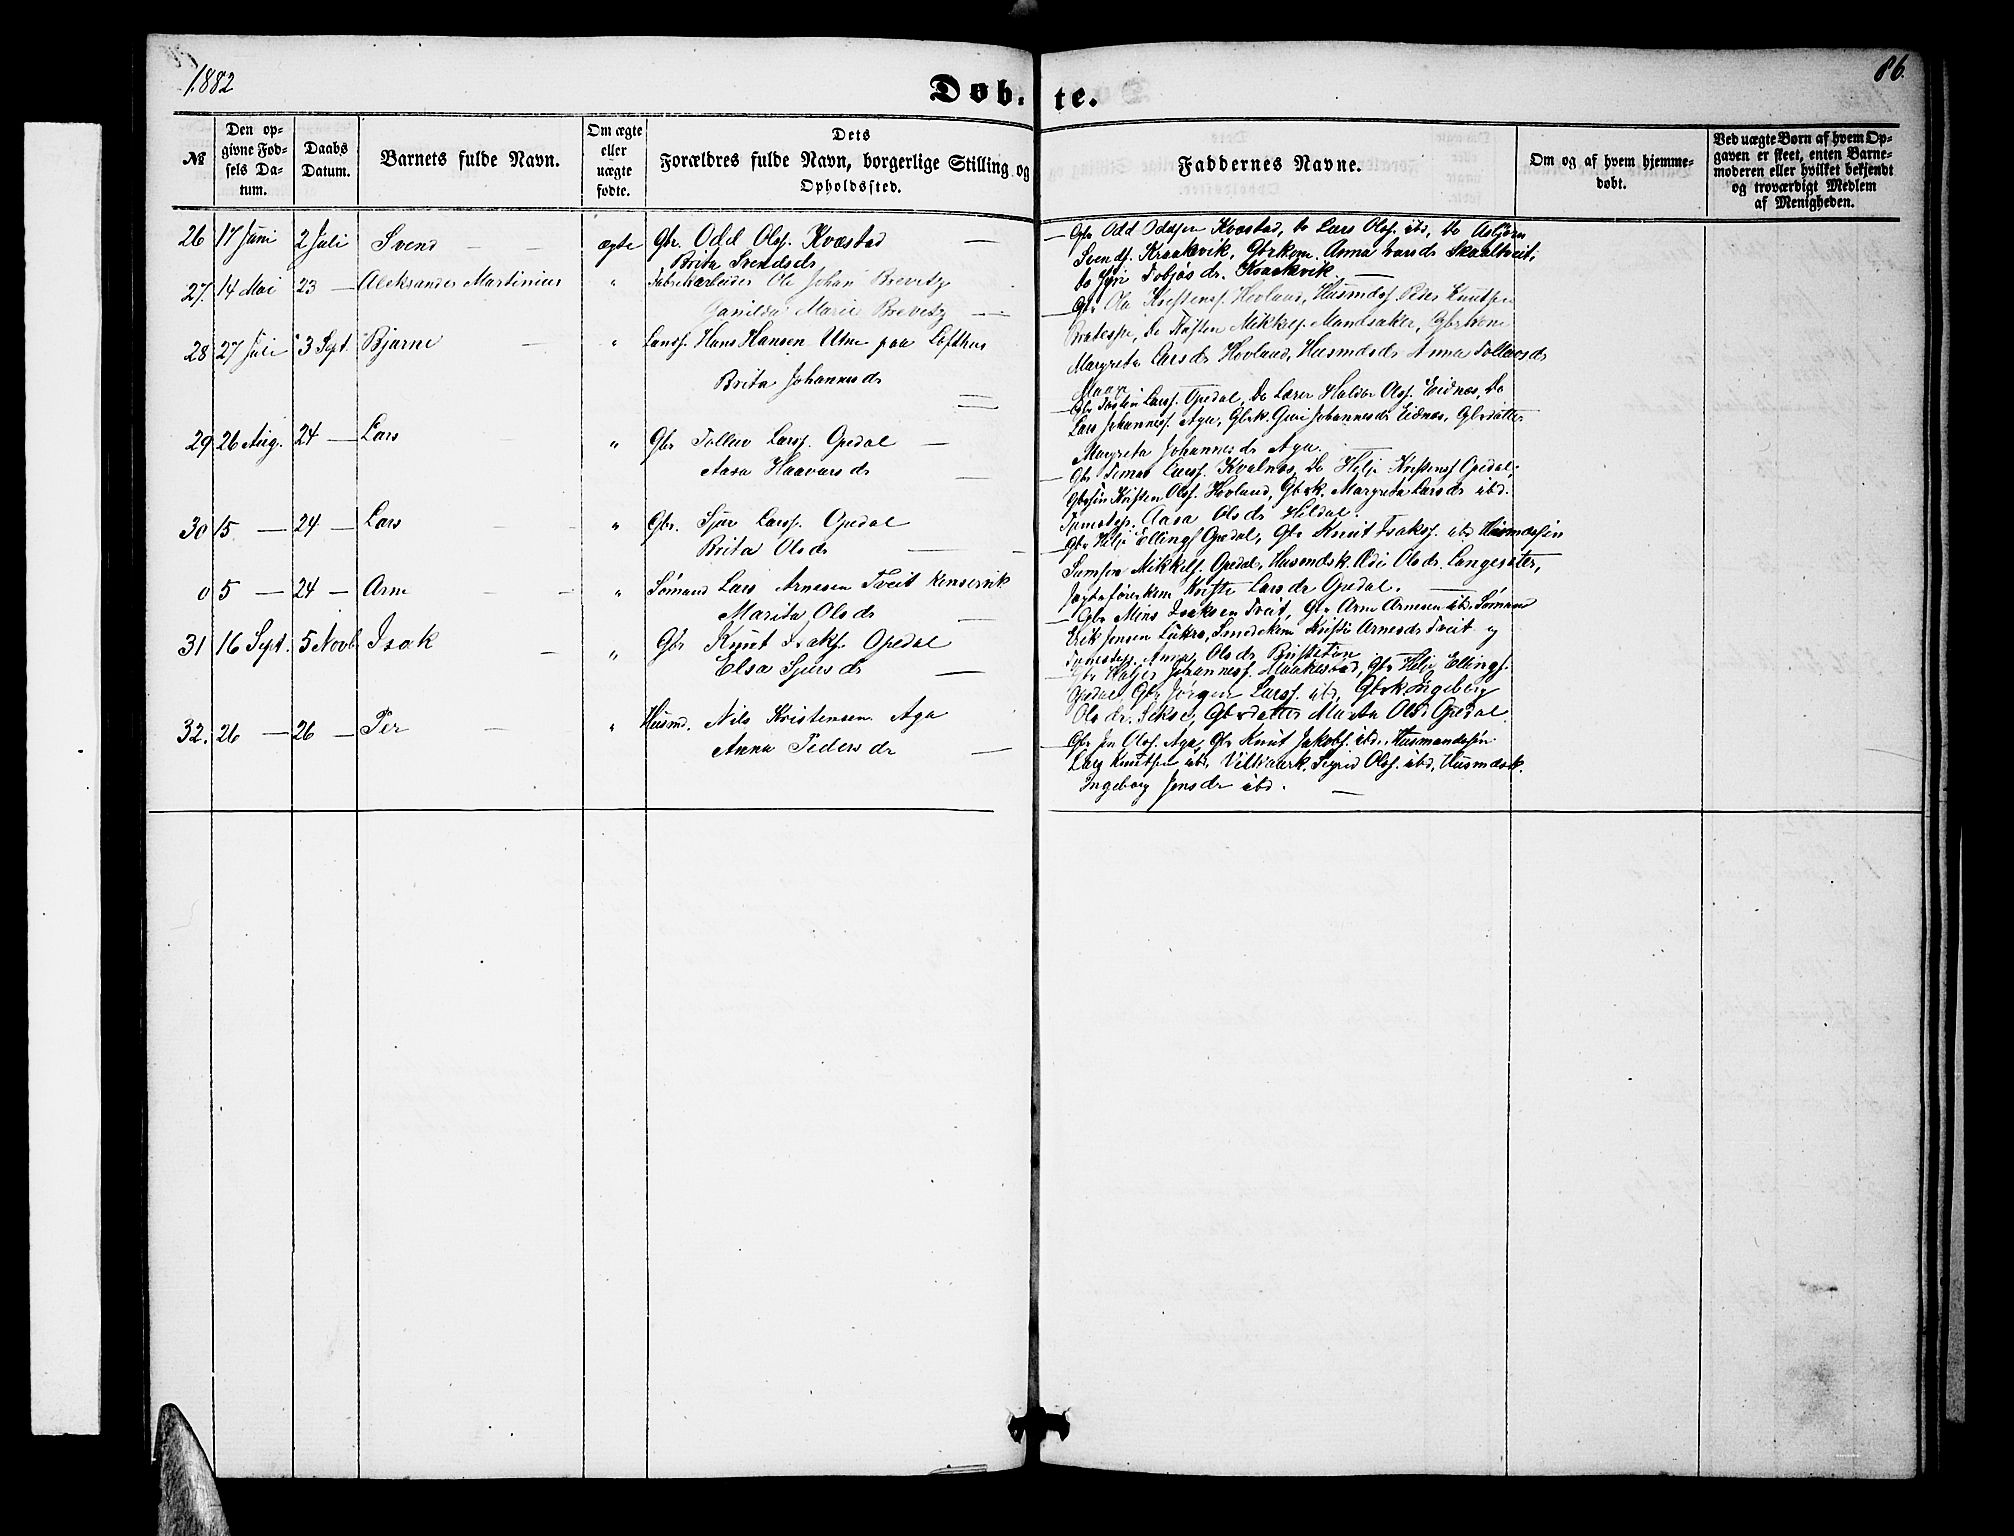 1882
86.
Døb- te.
№
Den op-
givne Fød-
sels Da-
tum.
Daabs
Datum.
Barnets fulde Navn.
Om ægte
eller
uægte
fødte.
Dets
Forældres fulde Navn, borgerlige Stilling og
Opholdssted.
Faddernes Navne.
Om og af hvem hjemme-
døbt.
Ved uægte Børn af hvem Op-
gaven er skeet, enten Barne-
moderen eller hvilket bekjendt
og troværdigt Medlem
af Menigheden.
26 17 Juni 2 Juli Svend — — ægte Gbr. Odd Olss. Kvæstad —
Brita Svendsdr
— Gbr Odd Oddsen Kvæstad, Do Lars Olss. ibd, Do Asbjørn
Svends. Kraakvik, Gbrkone Anna Ivarsdr Skaaltveit,
Do Torbjøsdr. Kraakvik —
27. 14 Mai 23 — Aleksander Martinius " Fabrikarbeider Ole Johan Brevetz
Gunilda Marie Brevetz —
— Gbr Ola Kristens. Hovland, Husmdss Peder Knutsen
Do Mikkels. Mandsaker, Gbrkone
Margreta Larsdr Hovland, Husmdsdr Anna Tollevsdr
28 27 Juli 3 Sept. Bjarne — " Landh. Hans Hansen Utne paa Lofthus
Brita Johannesdr
— Gbr Larss. Opedal, Do Lærer Haldor Olss. Eidnes, Do
Lars Johanness. Aga, Gbrk. Guri Johannesdr Eidnes, Gbrdatter
Margreta Johannesdr Aga
29 26 Aug. 24 — Lars " Gbr Tollev Larss. Opedal —
Aasa Haavarsdr —
— Gbr Larss. Kvalnes, Do Helje Kristenss Opedal,
Gbrsøn Kristen Olss. Hovland, Gbrk. Margreta Larsdr ibd.
Tjenestep. Aasa Olsdr Hildal.
30 15 — 24 — Lars " Gbr. Sjur Larss. Opedal
Brita Olsdr —
— Gbr Helje Ellings Opedal, Gbr Knut Isakss. ibd Husmdssøn
Samson Mikkels. Opedal, Husmdsk. Olsdr. Langesæter,
Kristi Larsdr Opedal. —
0 5 — 24 — Arne — " Sømand Lars Arnesen Tveit Kinservik
Marita Olsdr —
— Gbr Isaksen Tveit, Gbr Arne Arnesen ibd. Sømand
Erik Jensen Lutro, Smedekone Kristi Arnesdr Tveit og
Tjenestep. Anna Olsdr
31 16 Sept. 5 Novb Isak — " Gbr Knut Isaks. Opedal
Elsa Sjursdr —
— Gbr Johanness. Maakestad, Gbr Helje Ellings.
Opedal Gbr Jørgen Larss. ibd, Gbrk Ingeborg
Olsdr. Sekse, Gbrdatter Marita Olsd Opedal.
32. 26 — 26 — Per — " Husm. Nils Kristensen Aga
Anna Pedersdr —
— Gbr Jon Olss. Aga, Gbr Knut Jakobs. ibd., Husmandssøn
Lars Knutsen ibd, Sigrid Olss. ibd, Husmdsk.
Ingeborg Jonsdr ibd. —